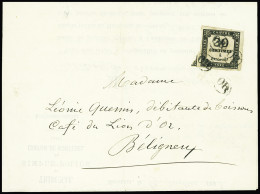 30
CENTIMES
Madame
Léonie Quersin, débitante de boissons
Café du Lion d'Or.
Béligneux